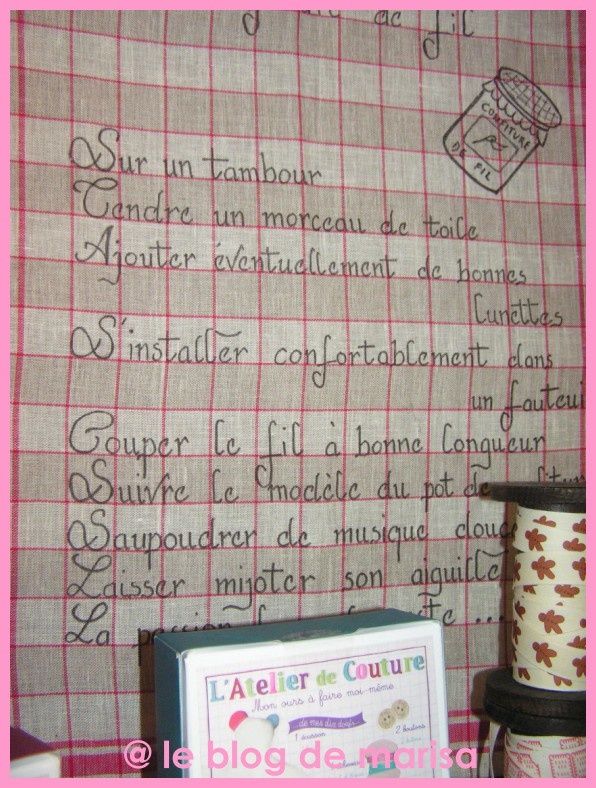 de fil
CONFITURE
DE FIL
Sur un tambour
Tendre un morceau de toile
Ajouter éventuellement de bonnes
lunettes
S'installer confortablement dans
un fauteui
Couper le fil à bonne longueur
Suivre le modèle du pot de
Saupoudrer de musique douce
Laisser mijoter son aiguille
La
L'Atelier de Couture
Mon ours à faire moi-même
de mes dix doigts
1 écusson
2 boutons
@ le blog de marisa